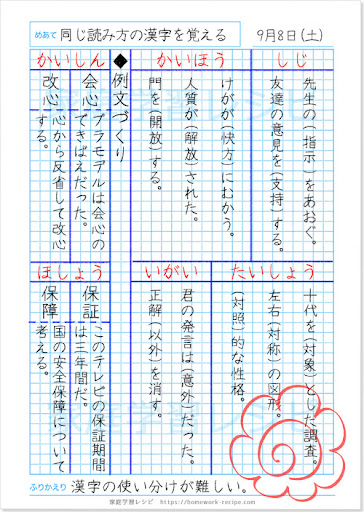 めあて 同じ読み方の漢字を覚える 9月8日(土)
しじ
先生の(指示)をあおぐ。
友達の意見を(支持)する。
かいほう
けがが(快方)にむかう。
人質が(解放)された。
門を(開放)する。
たいしょう
十代を(対象)とした調査。
左右(対称)の図形。
(対照)的な性格。
いがい
君の発言は(意外)だった。
正解(以外)を消す。
◆例文づくり
かいしん
会心 プラモデルは会心の
できばえだった。
改心 心から反省して改心
する。
ほしょう
保証 このテレビの保証期間
は三年間だ。
保障 国の安全保障について
考える。
家庭学習レシピ
ふりかえり 漢字の使い分けが難しい。
家庭学習レシピ https://homework-recipe.com/